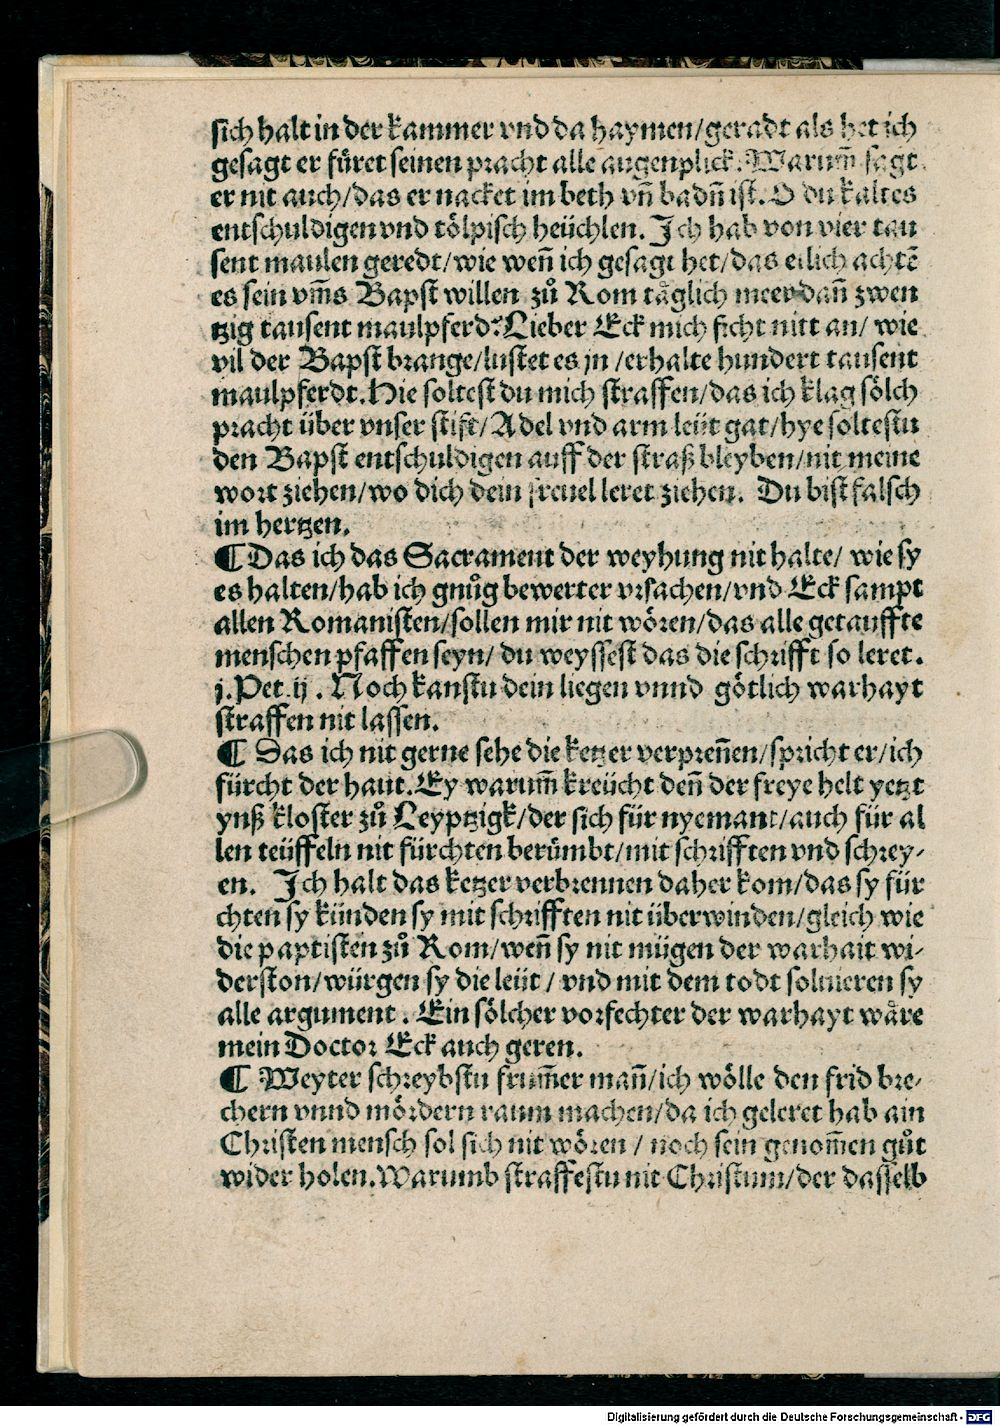 sich halt in der kammer vnd da haymen/geradt als het ich
gesagt er füret seinen pracht alle augenplick. Warum̄ sagt
er nit auch/das er nacket im beth vn̄ badn̄ ist. O du kaltes
entschuldigen vnd tölpisch heüchlen. Ich hab von vier tau
sent maulen geredt/wie wen̄ ich gesagt het/das etlich achtē
es sein vm̄s Bapst willen zů Rom täglich meer dan̄ zwen
tzig tausent maulpferd. Lieber Eck mich ficht nitt an/ wie
vil der Bapst brange/lustet es jn /erhalte hundert tausent
maulpferdt. Hie soltest du mich straffen/das ich klag sölch
pracht über vnser stift/Adel vnd arm leüt gat/hye soltestu
den Bapst entschuldigen auff der straß bleyben/nit meine
wort ziehen/wo dich dein freuel leret ziehen. Du bist falsch
im hertzen.
¶ Das ich das Sacrament der weyhung nit halte/ wie sy
es halten/hab ich gnůg bewerter vrsachen/vnd Eck sampt
allen Romanisten/sollen mir nit wören/das alle getauffte
menschen pfaffen seyn/ du weyssest das die schrifft so leret.
j.Pet.ij. Noch kanstu dein liegen vnnd götlich warhayt
straffen nit lassen.
¶ Das ich nit gerne sehe die ketzer verpren̄en/spricht er/ich
fürcht der haut. Ey warum̄ kreücht den̄ der freye helt yetzt
ynß kloster zů Leyptzigk/der sich für nyemant/auch für al
len teüffeln nit fürchten berümbt/mit schrifften vnd schrey-
en. Ich halt das ketzer verbrennen daher kom/das sy für
chten sy künden sy mit schrifften nit überwinden/gleich wie
die paptisten zů Rom/wen̄ sy nit mügen der warhait wi-
derston/würgen sy die leüt / vnd mit dem todt soluieren sy
alle argument . Ein sölcher vorfechter der warhayt wäre
mein Doctor Eck auch geren.
¶ Weyter schreybstu frum̄er man̄/ich wölle den frid bre-
chern vnnd mördern raum machen/da ich geleret hab ain
Christen mensch sol sich nit wören / noch sein genom̄en gůt
wider holen. Warumb straffestu nit Christum/der dasselb
Digitalisierung gefördert durch die Deutsche Forschungsgemeinschaft - DFG